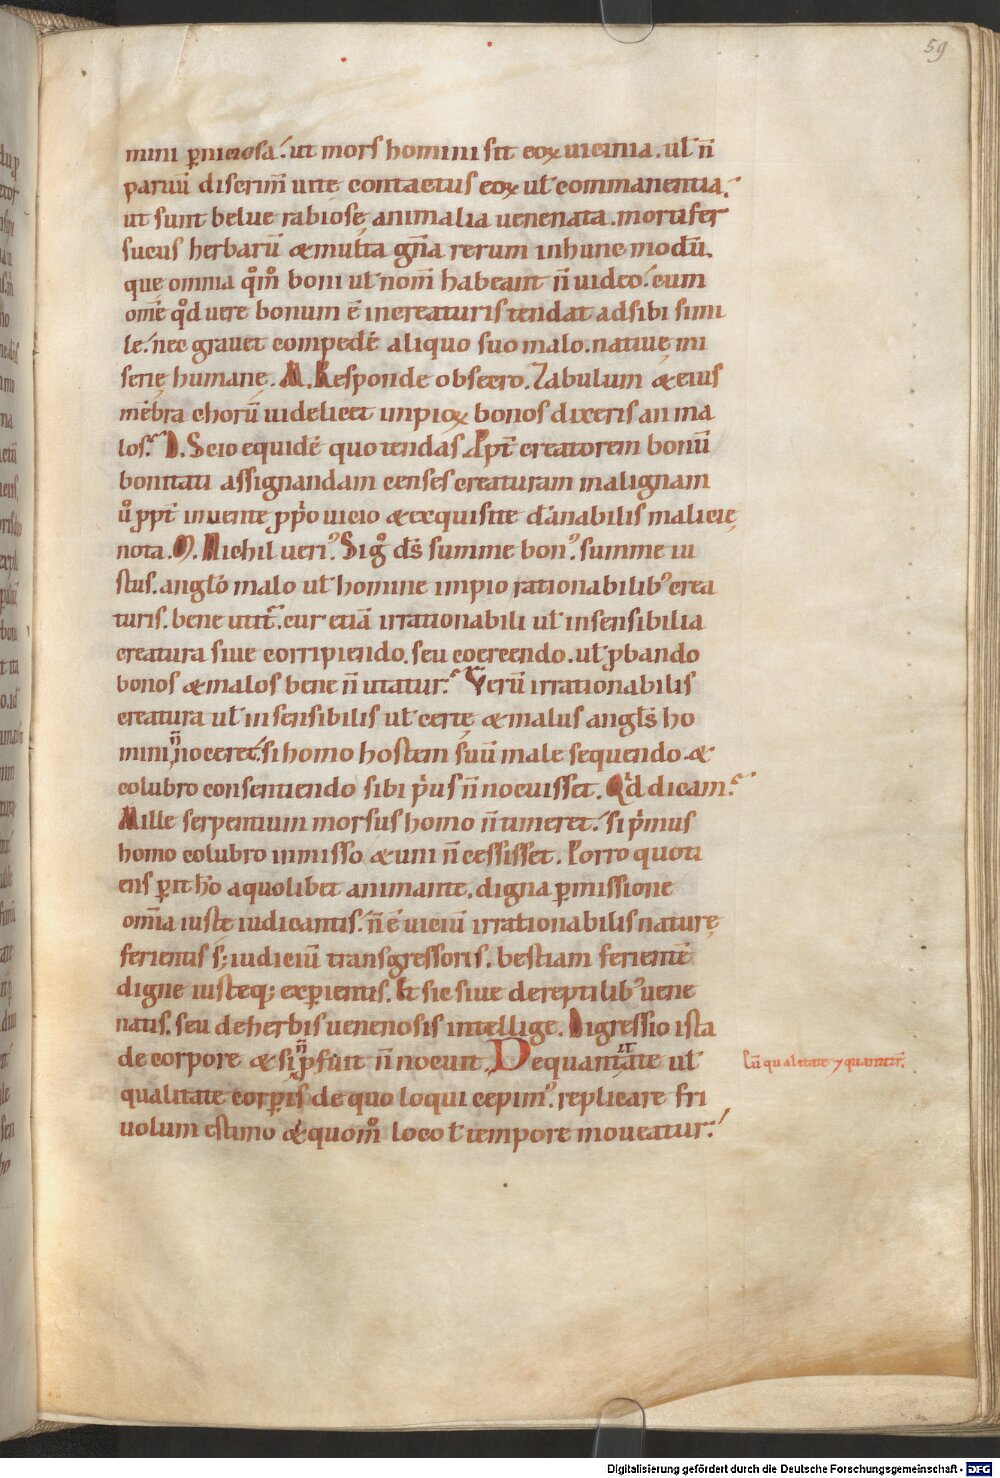 59
mini ꝑniciosa. ut mors homini sit eoꝝ uicinia. ul n̄
paruū discrim̄ uite contactus eoꝝ ul commanentia.
ut sunt belue rabiosę animalia uenenata. mortifer
sucus herbarū & multa gn̄a rerum in hunc modū.
quę omnia qͦmͦ boni ul nom̄ habeant n̄ uideo. cum
om̄e qͦd uere bonum ē in creaturis tendat ad sibi simi
le. nec grauet compede aliquo suo malo. natiuę mi
serię humanę. M. Responde obsecro. Zabulum & eius
mēbra chorū uidelicet impioꝝ bonos dixeris an ma
los. D. Scio equidē quo tendas. Ppt̄ creatorem bonū
bonitati assignandam censes creaturam malignam
uͦ ppt̄ inuente ppͥo uicio & exquisite dānabilis malicię
nota. M. Nichil ueriꝰ. Si gͦ ds̄ summe bonꝰ. summe iu
stus. angło malo ul homine impio rationabilibꝰ crea
turis. bene utit̄. cur etiā irrationabili ul insensibilia
creatura siue corripiendo. seu coercendo. ul ꝓbando
bonos & malos bene n̄ utatur. Verū irrationabilis
creatura ul insensibilis ul certe & malus angls̄ ho
mini n̄ noceret. si homo hostem suū male sequendo. &
colubro consentiendo sibi pͥus n̄ nocuisset. Qͥd dicam.
Mille serpentium morsus homo n̄ timeret. si pͥmus
homo colubro inmisso & uni n̄ cessisset. Porro quoti
ens ꝑit hō a quolibet animante. digna ꝑmissione
omīa iuste iudicantis. n̄ ē uiciū irrationabilis naturę
ferientis s; iudiciū transgressoris. bestiam ferientē
digne iusteq; exꝑientis. Et sic siue de reptilibꝰ uene
natis. seu de herbis uenenosis intellige. Digressio ista
de corpore & si n̄ ꝓfuit n̄ nocuit. De quantitate ul
qualitate corꝑis de quo loqui cepimꝰ. replicare fri
uolum estimo & quomͦ loco l tempore moueatur.